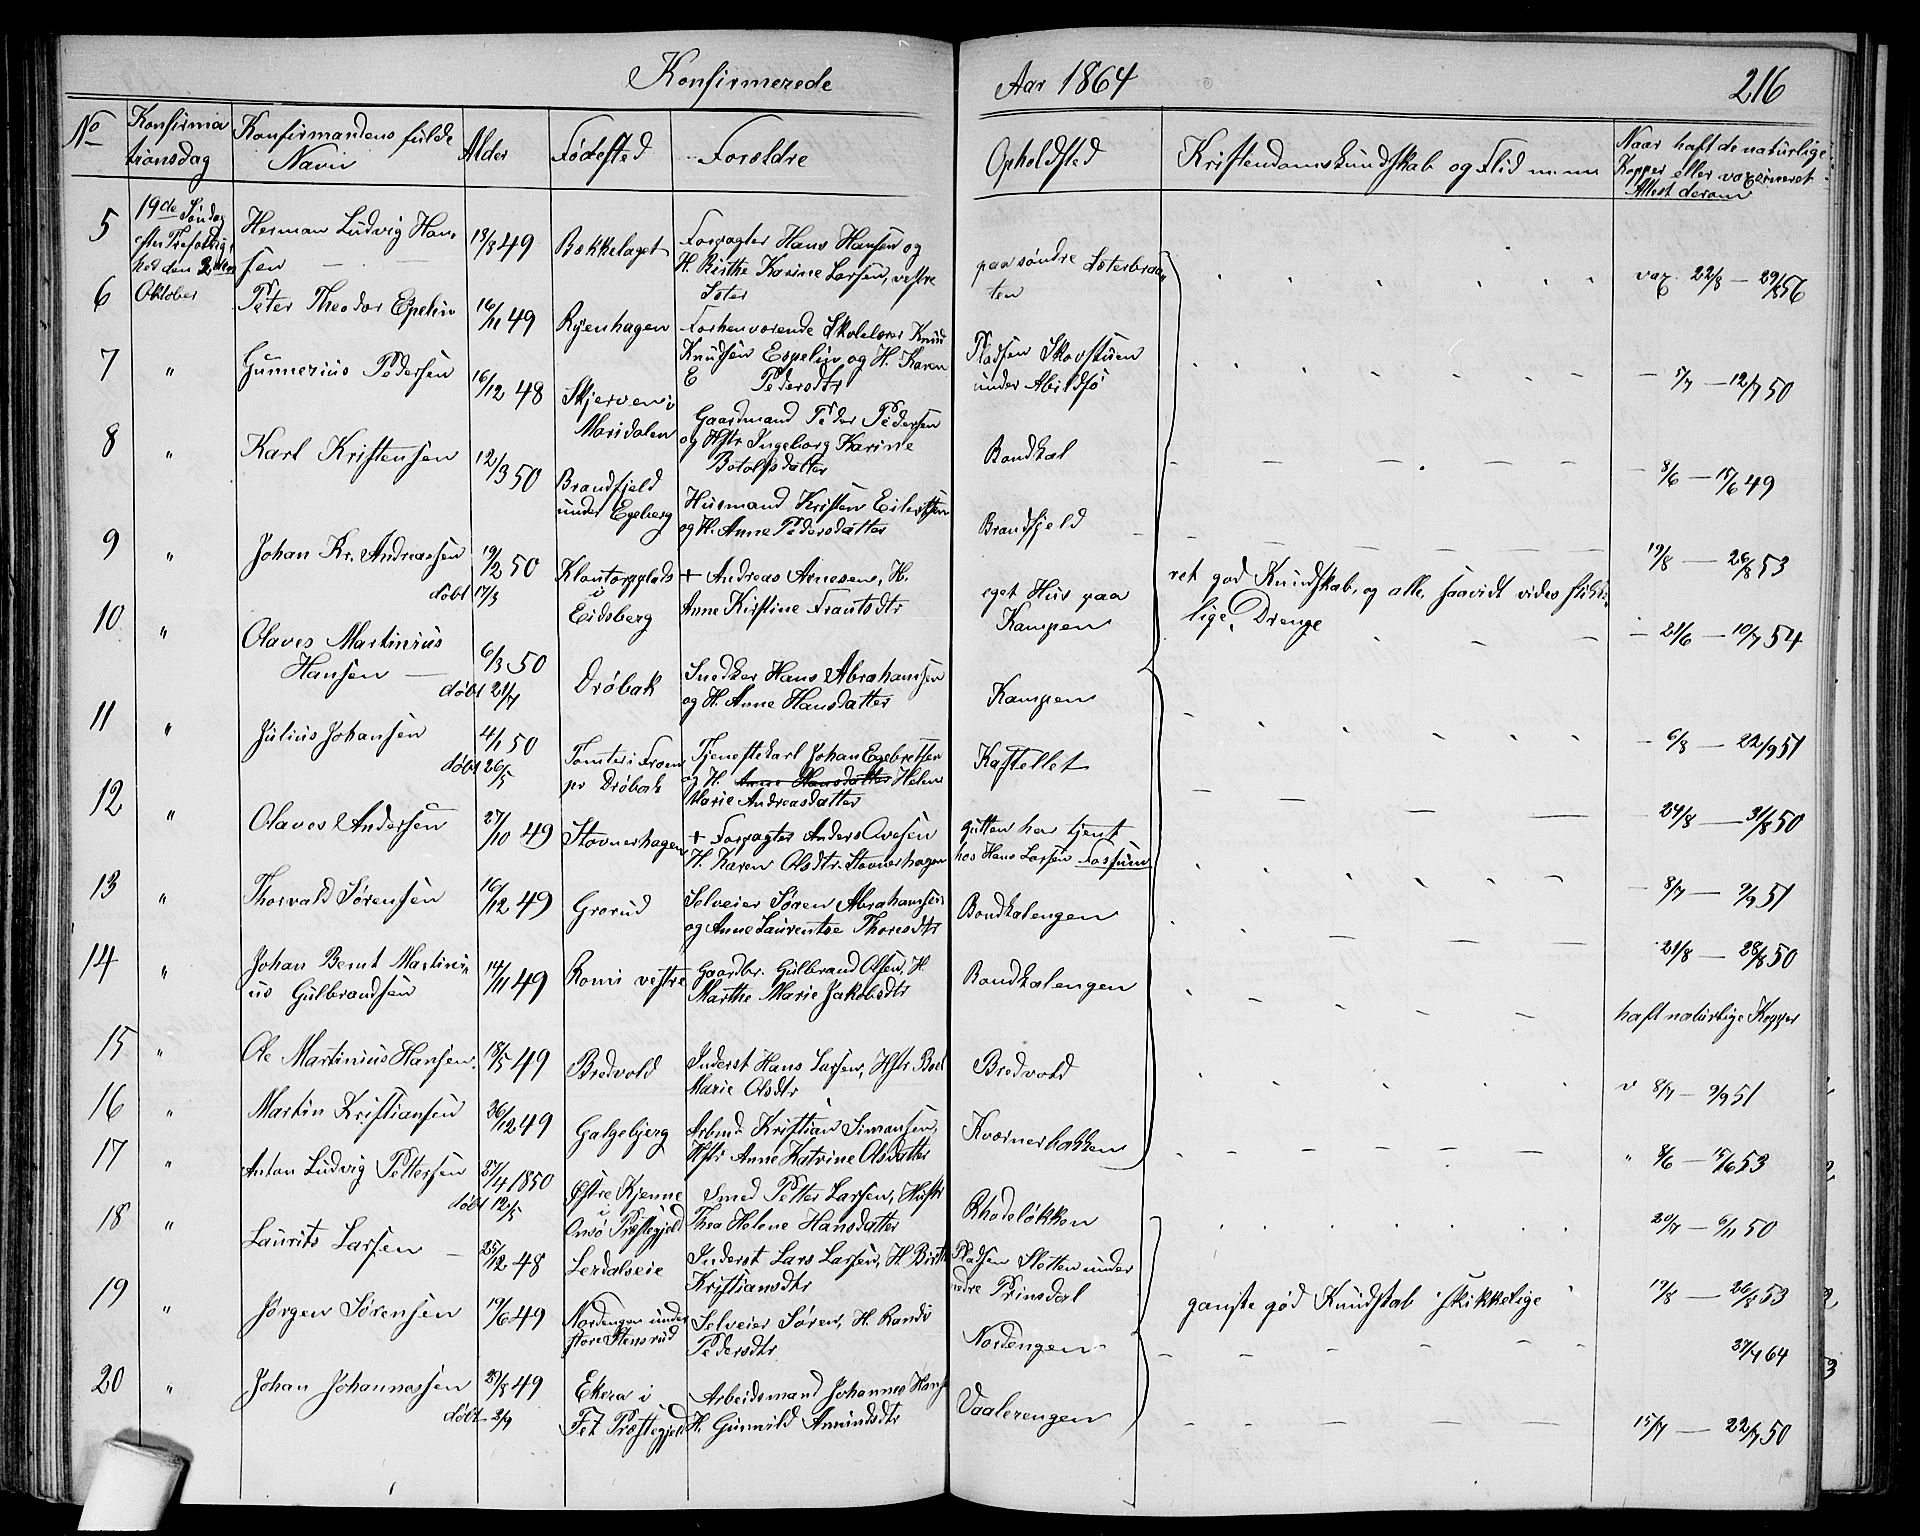 Konfirmerede Aar 1864 216
No
Konfirma
tionsdag
Konfirmandens fulde
Navn
Alder
Fødested
Forældre
Opholdsted
Kristendomskundskab og Flid m. m.
Naar haft de naturlige
Kopper eller vaxineret
Attest derom
5
19de Søndag
efter Trefoldig
hed den 2den
Oktober
Herman Ludvig Han
sen
18/3 49
Bækkelaget
Forpagter Hans Hansen og
H. Birthe Karine Larsen, vestre
paa søndre Østerbraa
ten
vax. 22/8 — 29/8 56
6
Peter Theodor Espelin
16/11 49
Ryenhagen
Forhenværende Skolelærer Knud
Knudsen Espelin og H. Karen
E Pedersdtr
Pladsen Skovstuen
under Abildsø
5/7 — 12/7 50
7 "
Gunnerius Pedersen
16/12 48
Skjerven i
Maridalen
Gaardmand Peder Pedersen
og Hstr Ingeborg Karine
Botolfsdatter
Bondkal
8/6 — 15/6 49
8 "
Karl Kristensen
12/3 50
Brandfjeld
under Egeberg
Husmand Kristen Eilertsen
og H. Anne Pedersdatter
Brandfjeld
19/8 — 26/8 53
9 "
Johan Kr. Andreassen
19/2 50
døbt 17/3
i
Eidsberg
+ Andreas Arnesen, H.
Anne Kirstine Frantsdtr
eget Hus paa
Kampen
ret god Kundskab, og alle, saavidt vides skikke
lige Drenge
21/6 — 10/7 54
10 "
Olaves Martinius
Hansen
6/3 50
døbt 21/7
Drøbak
Snedker Hans Abrahamsen
og H. Anne Hansdatter
Kampen
6/8 — 22/9 51
11 "
Julius Johansen
4/1 50
døbt 26/5
Tomter i Froen
pr Drøbak
Tjenestekarl Johan Egebretsen
og H. Anne Hansdatter Helene
Marie Andreasdatter
Kastellet
24/8 — 31/8 50
12 "
Olaves Andersen
27/10 49
Stovnerhagen
+ Forpagter Anders Avesen
H. Karen Olsdtr. Stovnerhagen
gutten har tjent
hos Hans Larsen Fossum
8/7 — 9/9 51
13 "
Thorvald Sørensen
16/12 49
Grorud
Selveier Søren Abrahamsen
og Anne Laurentse Thoresdtr
Bondkalengen
21/8 — 28/8 50
14 "
Johan Bernt Martini
us Gulbrandsen
14/11 49
Romi vestre
Gaardbr. Gulbrand Olsen, H.
Marthe Marie Jakobsdtr
Bondkalengen
haft naturlige Kopper
15 "
Ole Martinius Hansen
18/5 49
Bredvold
Inderst Hans Larsen, Hstr Boel
Marie Olsdtr
Bredvold
v 8/7 — 9/9 51
16 "
Martin Kristiansen
26/12 49
Galgebjerg
Arbmd. Kristian Simansen,
Hstr Anne Katrine Olsdatter
Kværnerbakken
" 8/6 — 15/6 53
17 "
Anton Ludvig Pettersen
27/4 1850
døbt 12/5
Østre Kjenne
i
Onsø Præstegjeld
Smed Petter Larsen, Hustr
Thea Helene Hansdatter
Rhodeløkken
20/7 — 6/11 50
18 "
Laurits Larsen
25/12 48
Lerdalseie
Inderst Lars Larsen, H. Birthe
Kristiansdtr
Pladsen Sletten under
nedre Prinsdal
ganske god Kundskab skikkelige
19/8 — 26/8 53
19 "
Jørgen Sørensen
19/6 49
Nordengen under
store Stensrud
Selveier Søren, H. Randi
Pedersdtr
Nordengen
27/4 64
20 "
Johan Johannessen
døbt 2/9
Ekera i
Fet Præstegjeld
Arbeidsmand Johannes Hans
H. Gunnild Amundsdtr
Vaalerengen
15/7 — 22/7 50